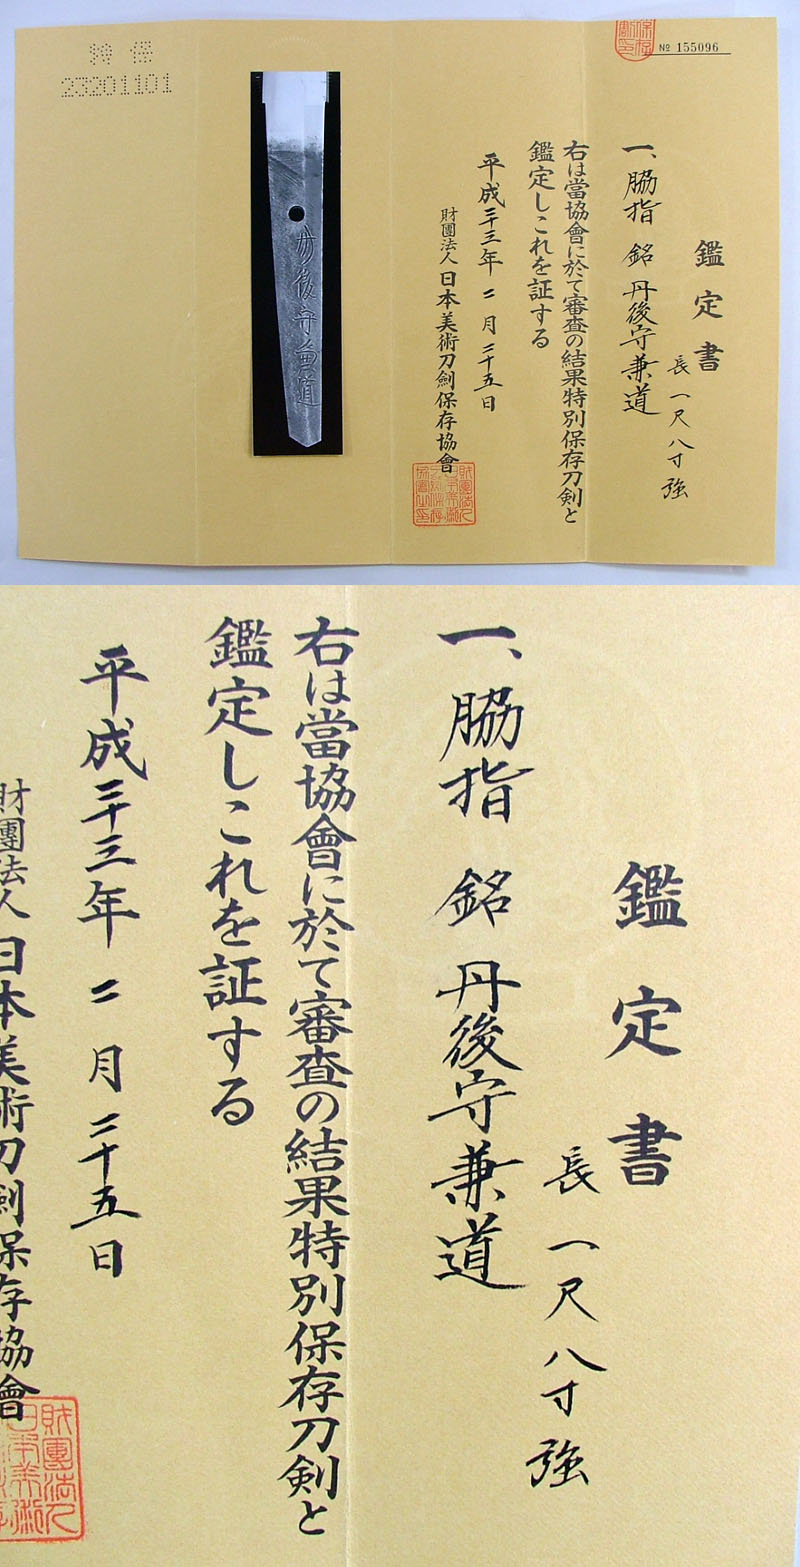 特保
23201101
№ 155096
鑑定書
長 一尺八寸強
一、脇指 銘 丹後守兼道
右は當協會に於て審査の結果特別保存刀剣と
鑑定しこれを証する
平成二十三年 二月 二十五日
財團法人 日本美術刀劍保存協會
丹後守兼道
鑑定書
長 一尺八寸強
一、脇指 銘 丹後守兼道
右は當協會に於て審査の結果特別保存刀剣と
鑑定しこれを証する
平成二十三年 二月 二十五日
財團法人 日本美術刀劍保存協會